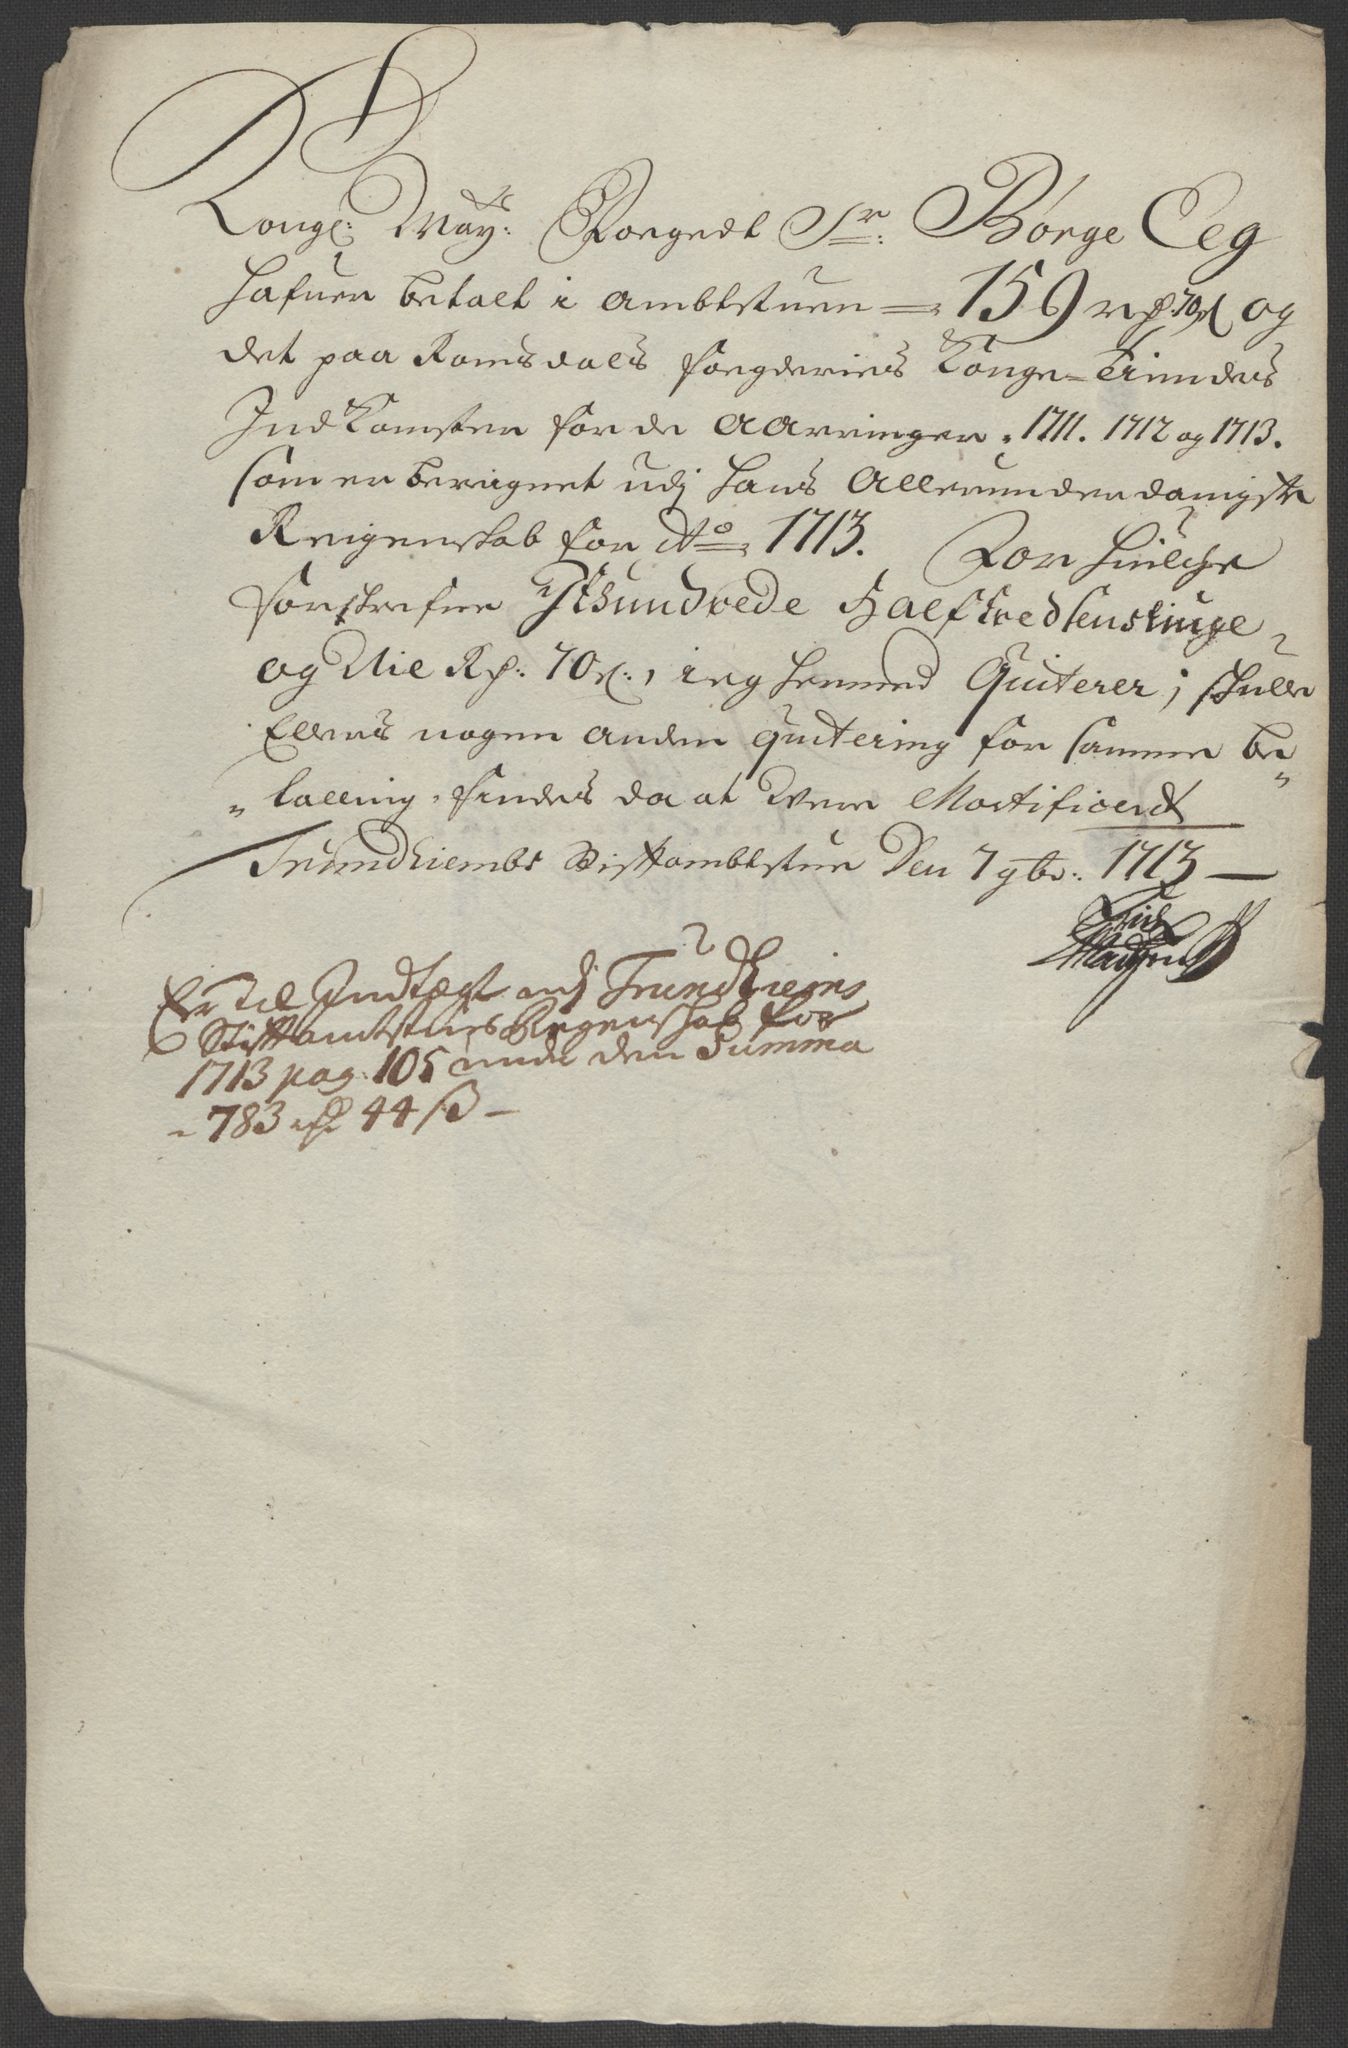 Kongl: May: Foegedt Sr: Børge Eeg
hafuer betalt i Ambtstuen = 159 rd: 70 s og
det paa Romsdals Foegderies Konge-Tiendes
Indkomster for de Aaringer, 1711. 1712 og 1713.
som er beregnet udj hans Allerunderdanigste
Reigenskab for Ao 1713. For huilche
forskrefne Et Hundrede Halftredsenstiuge
og Nie Rd: 70 s:, ieg hermed Quiterer; skulle
Ellers nogen anden quitering for samme be
talling, findes da at were Mortificerdt
Trundhiembs Stiftambtstue Den 7 9br: 1713
Er til Indtægt udj Trundhiems
Stiftamtstues Regenskab for
1713 pag: 105 under den Summa
783 rd 44 s